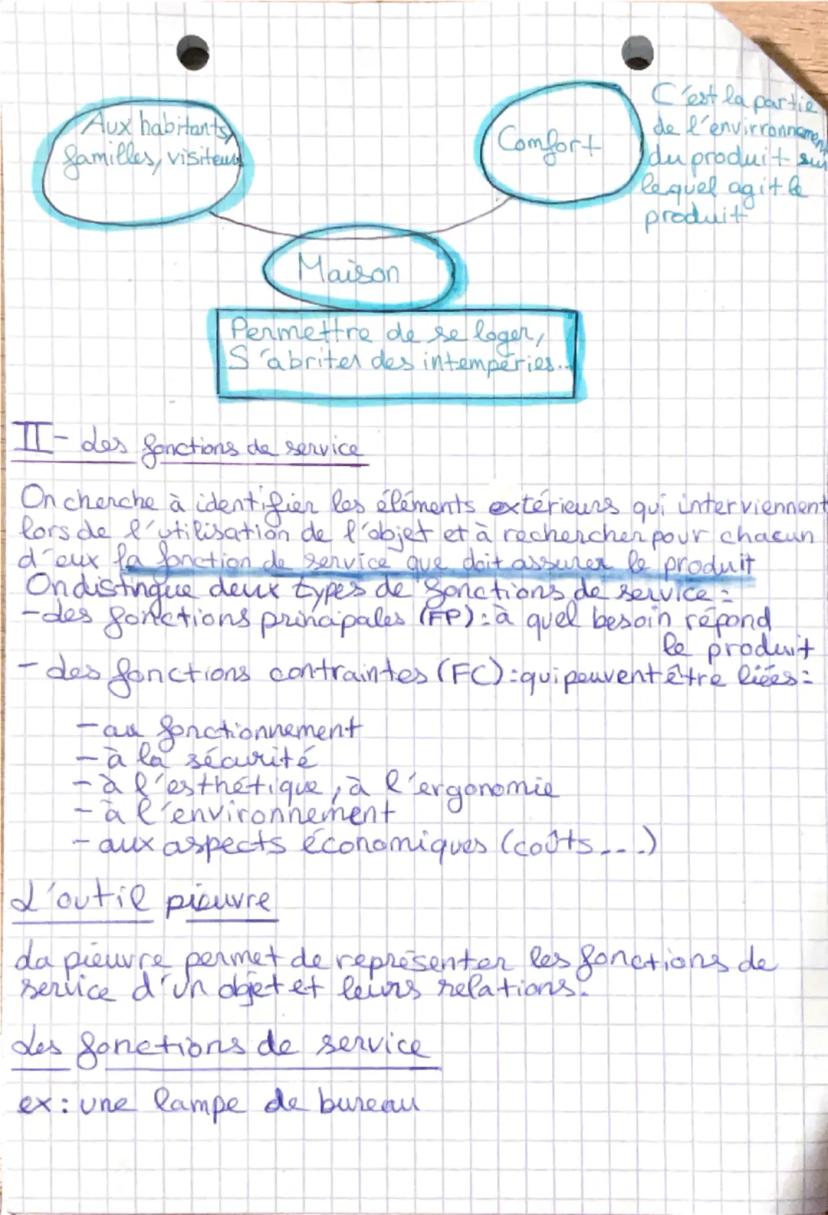 Aux habitants,
familles, visiteurs
Comfort
C'est la partie
de l'envirronnement
du produit sur
lequel agit le
produit
Maison
Permettre de se loger,
S'abriter des intempéries...
II - Les fonctions de service
On cherche à identifier les éléments extérieurs qui interviennent
lors de l'utilisation de l'objet et à rechercher pour chacun
d'eux la fonction de service que doit assurer le produit
On distingue deux types de fonctions de service :
- des fonctions principales (FP) : à quel besoin répond
le produit
- des fonctions contraintes (FC) : qui peuvent être liées :
- au fonctionnement
- à la sécurité
- à l'esthétique, à l'ergonomie
- à l'environnement
- aux aspects économiques (coûts...)
L'outil pieuvre
La pieuvre permet de représenter les fonctions de
service d'un objet et leurs relations.
Les fonctions de service
ex : une lampe de bureau